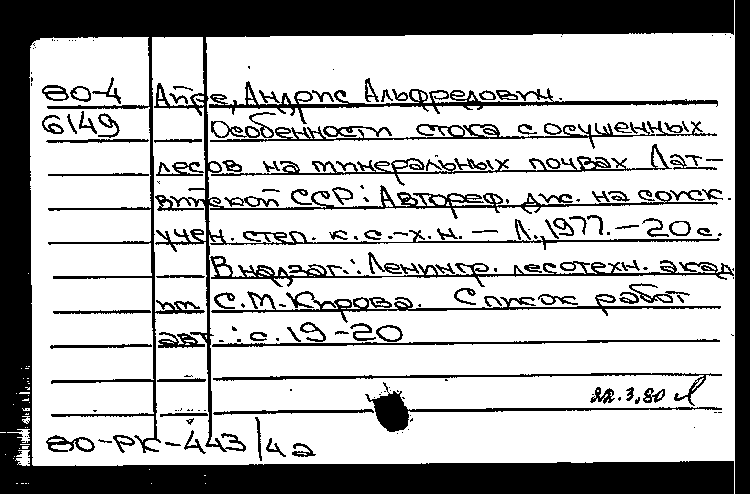 80-4 Айре, Андрис Альфредович.
6149 Особенности стока с осушенных
лесов на минеральных почвах Лат-
вийской ССР : Автореф. дис. на соиск.
учен. степ. к. с.-х. н. — Л., 1977. — 20 с.
В надзаг.: Ленингр. лесотехн. акад
им С.М. Кирова. Список работ
авт. : с. 19-20
22.3.80
80-РК-443/42